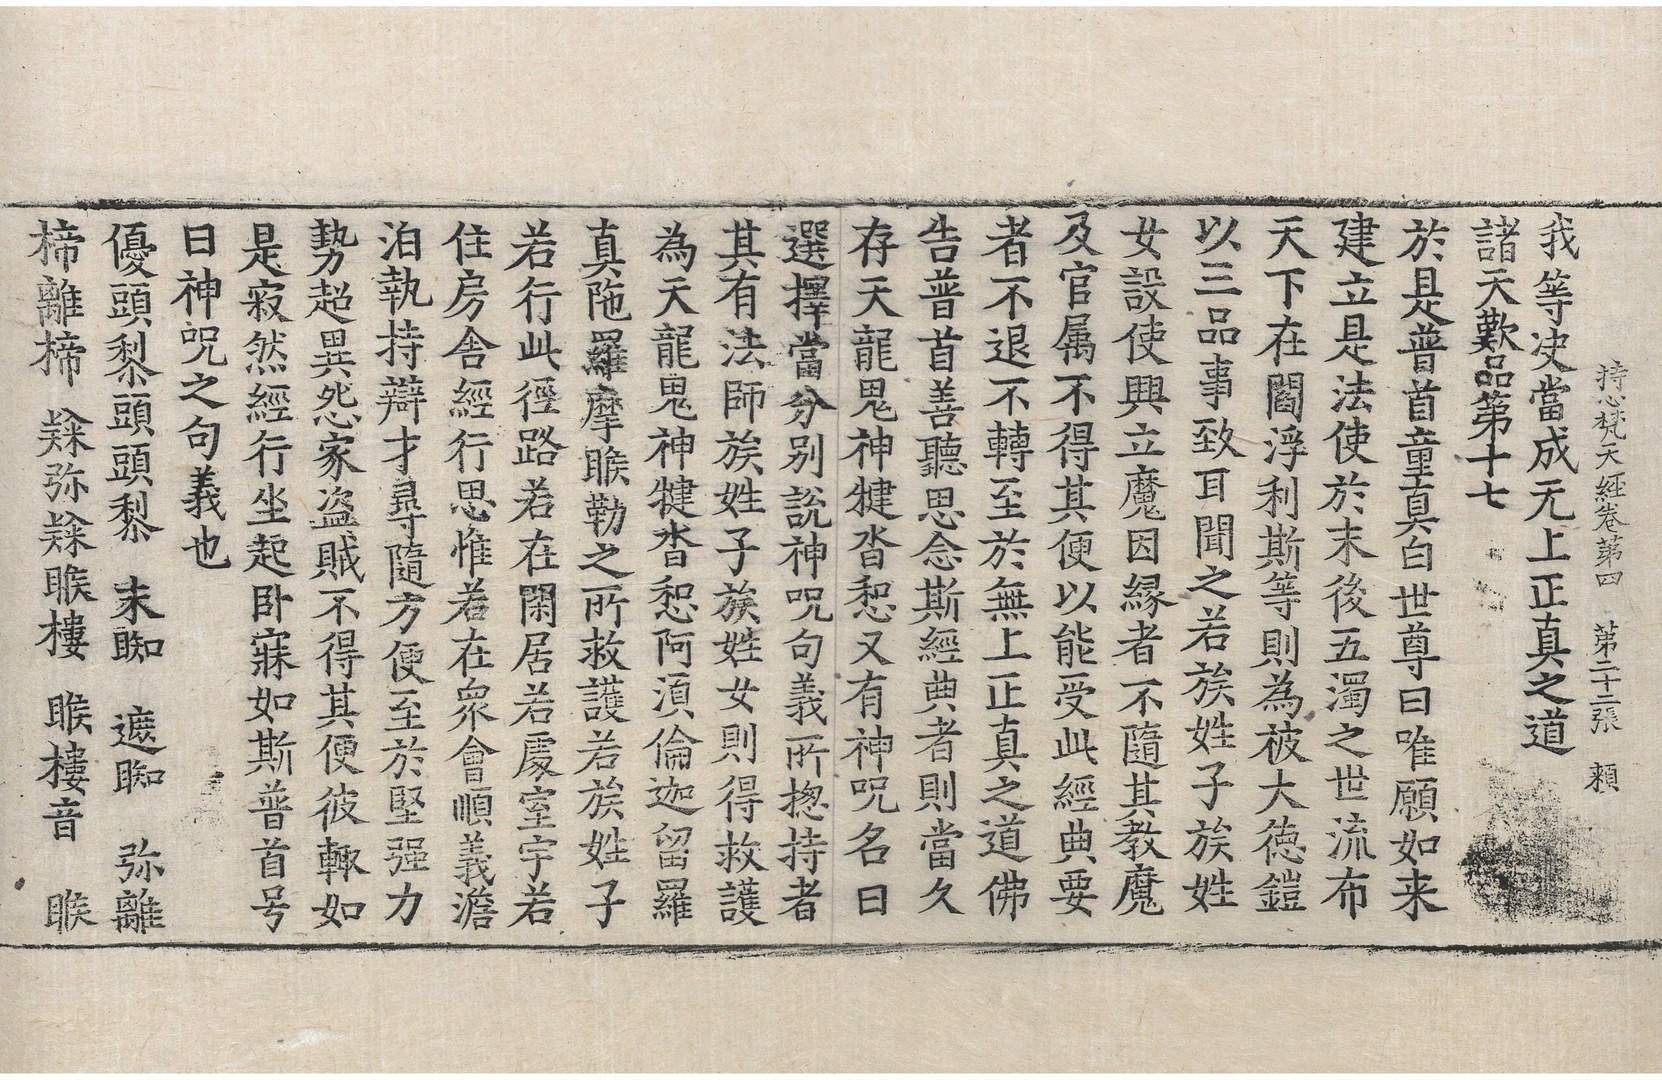 持心梵天經卷第四　第二十二張　賴
我等決當成无上正真之道
諸天歎品第十七
於是普首童真白世尊曰唯願如来
建立是法使於末後五濁之世流布
天下在閻浮利斯等則為被大德鎧
以三品事致耳聞之若族姓子族姓
女設使興立魔因縁者不隨其教魔
及官属不得其便以能受此經典要
者不退不轉至於無上正真之道佛
告普首善聽思念斯經典者則當久
存天龍鬼神犍沓惒又有神呪名曰
選擇當分别說神呪句義所揔持者
其有法師族姓子族姓女則得救護
為天龍鬼神犍沓惒阿湏倫迦留羅
真陁羅摩睺勒之所救護若族姓子
若行此徑路若在閑居若處室宇若
住房舍經行思惟若在衆會順義澹
泊執持辯才尋隨方便至於堅强力
勢超異怨家盗賊不得其便彼輙如
是寂然經行坐起卧寐如斯普首号
曰神呪之句義也
優頭黎頭頭黎　末𨅖　遮𨅖　弥離
楴離楴　𥻦弥𥻦睺樓　睺樓音　睺